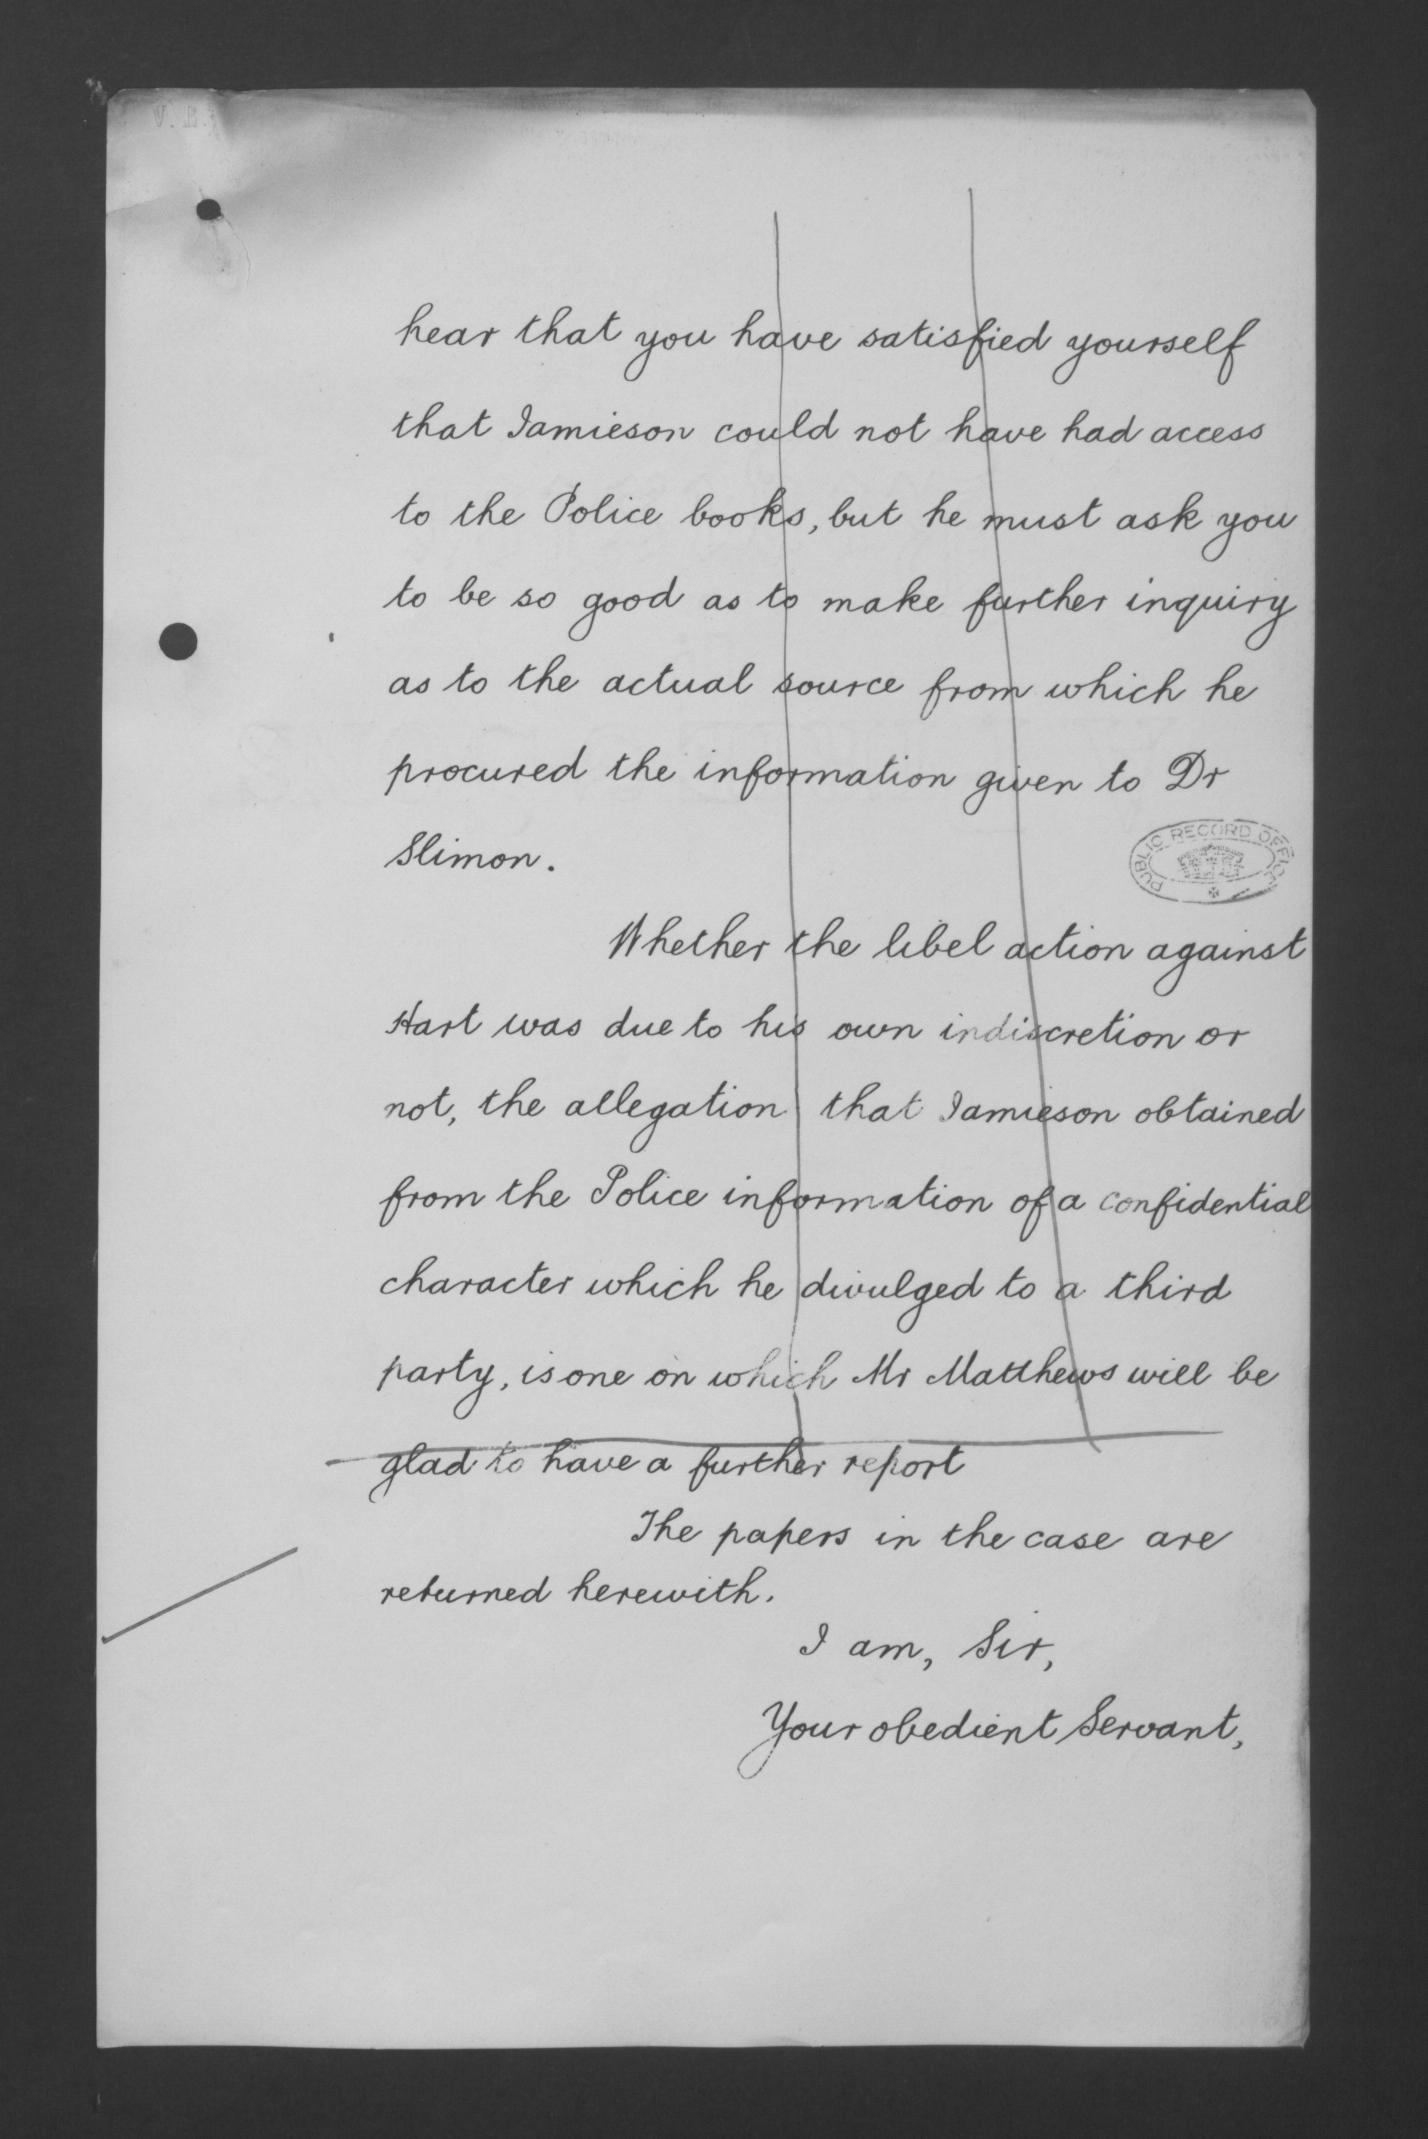 hear that you have satisfied yourself
that Jamieson could not have had access
to the Police books, but he must ask you
to be so good as to make further inquiry
as to the actual source from which he
procured the information given to Dr
Slimon.
PUBLIC RECORD OFFICE
Whether the libel action against
Hart was due to his own indiscretion or
not, the allegation that Jamieson obtained
from the Police information of a confidential
character which he divulged to a third
party, is one on which Mr Matthews will be
glad to have a further report
The papers in the case are
returned herewith.
I am, Sir,
Your obedient Servant,